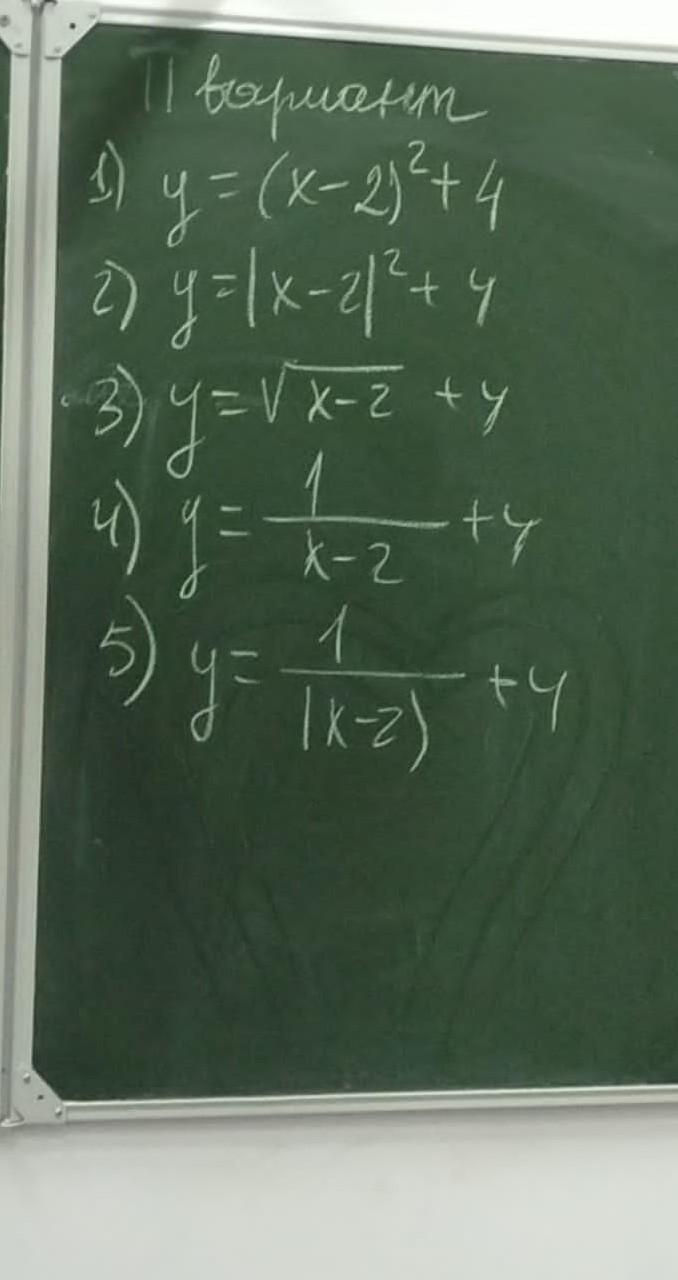 II вариант
1) y = (x-2)² + 4
2) y = |x-2|² + 4
3) y = √x-2 + 4
4) y = 1/(x-2) + 4
5) y = 1/|x-2| + 4